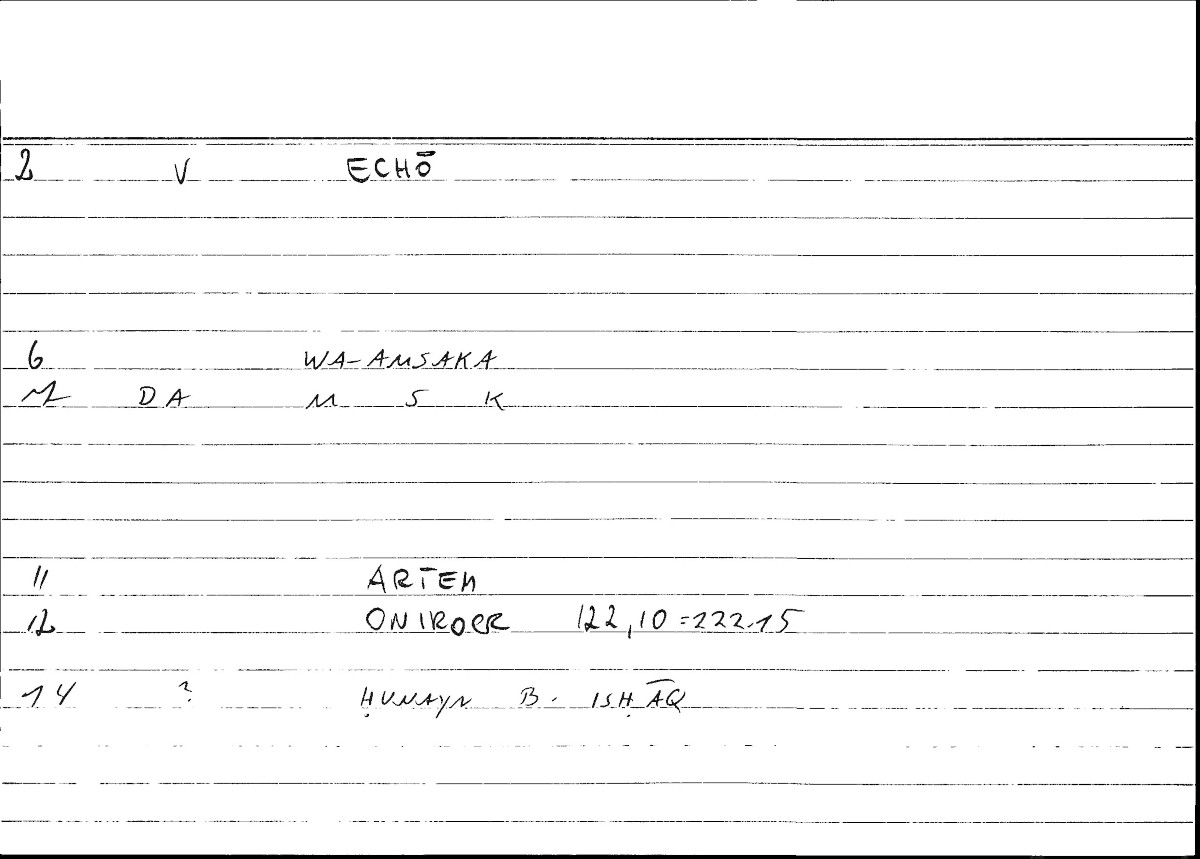 2 V ECHŌ
6 WA-AMSAKA
DA M S K
11 ARTEM
12 ONIROCR 122,10=222.15
14 ? ḤUNAYN B. ISḤĀQ